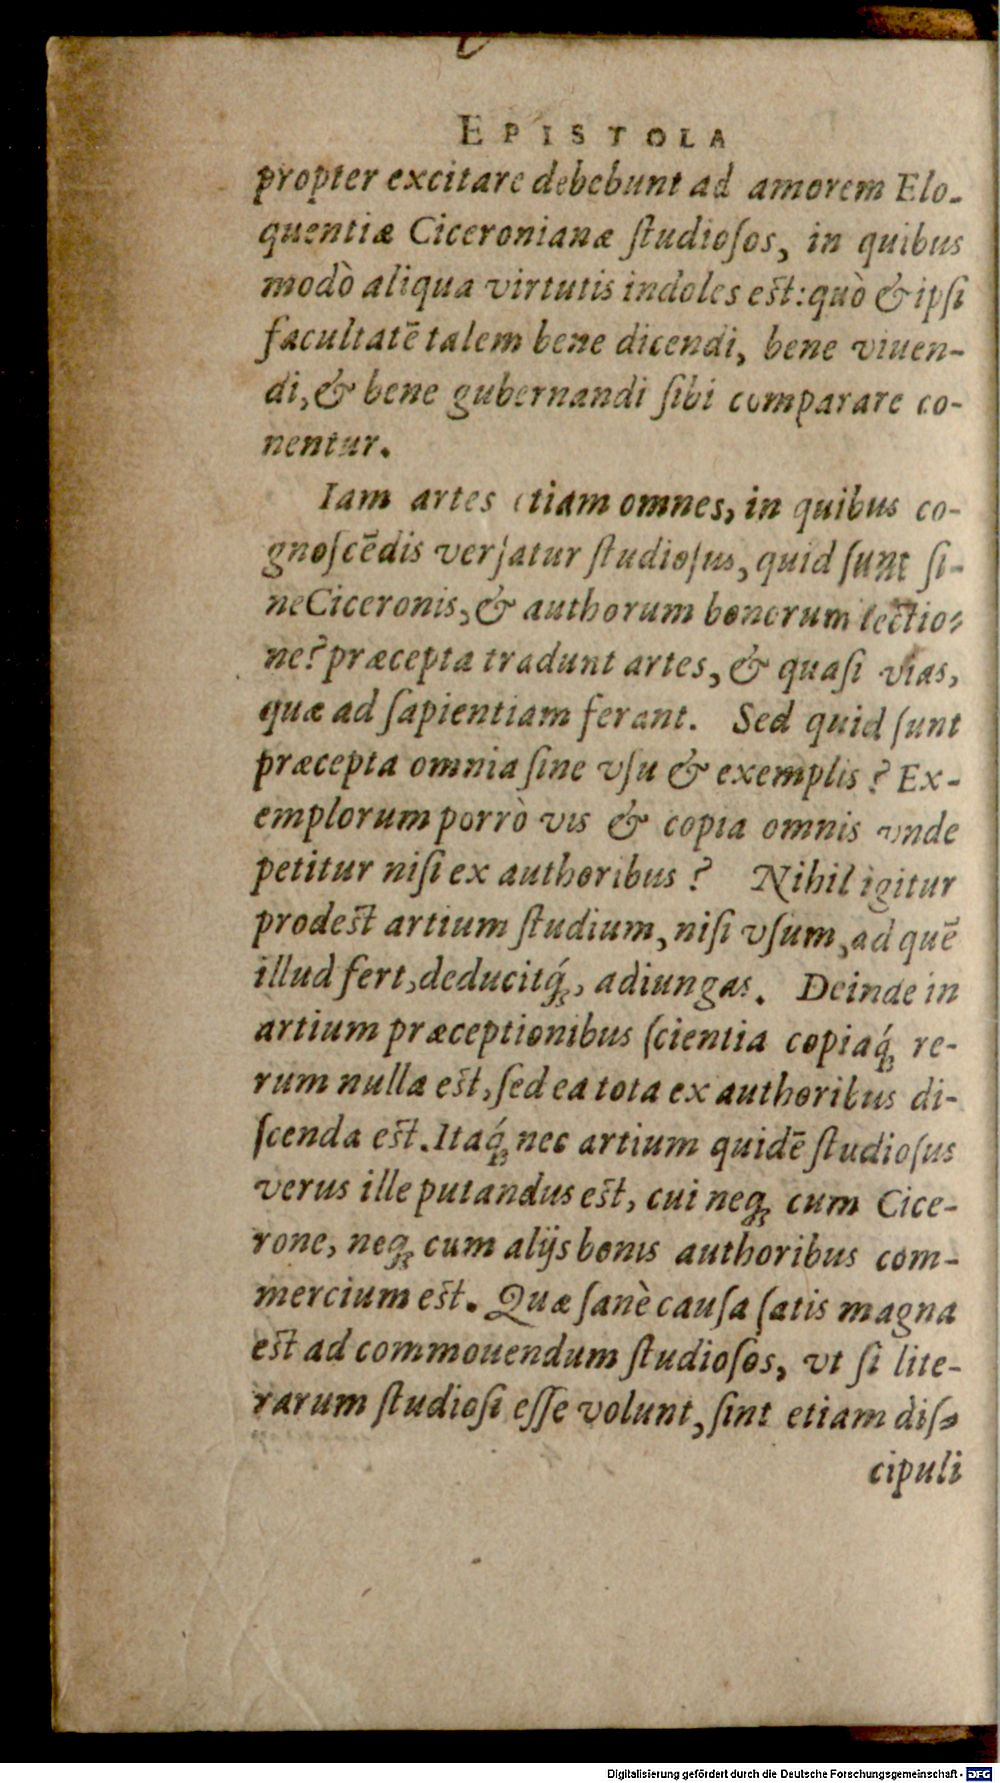 EPISTOLA
propter excitare debebunt ad amorem Elo-
quentiæ Ciceronianæ ſtudioſos, in quibus
modò aliqua virtutis indoles eſt: quò & ipſi
facultatē talem bene dicendi, bene viuen-
di, & bene gubernandi ſibi comparare co-
nentur.
Iam artes etiam omnes, in quibus co-
gnoſcēdis verſatur ſtudioſus, quid ſunt ſi-
ne Ciceronis, & authorum bonorum lectio-
ne? præcepta tradunt artes, & quaſi vias,
quæ ad ſapientiam ferant. Sed quid ſunt
præcepta omnia ſine vſu & exemplis? Ex-
emplorum porrò vis & copia omnis vnde
petitur niſi ex authoribus? Nihil igitur
prodeſt artium ſtudium, niſi vſum, ad quē
illud fert, deducitq́;, adiungas. Deinde in
artium præceptionibus ſcientia copiaq́; re-
rum nulla eſt, ſed ea tota ex authoribus di-
ſcenda eſt. Itaq́; nec artium quidē ſtudioſus
verus ille putandus eſt, cui neq; cum Cice-
rone, neq; cum alijs bonis authoribus com-
mercium eſt. Quæ ſanè cauſa ſatis magna
eſt ad commouendum ſtudioſos, vt ſi lite-
rarum ſtudioſi eſſe volunt, ſint etiam diſ-
cipuli
Digitalisierung gefördert durch die Deutsche Forschungsgemeinschaft - DFG